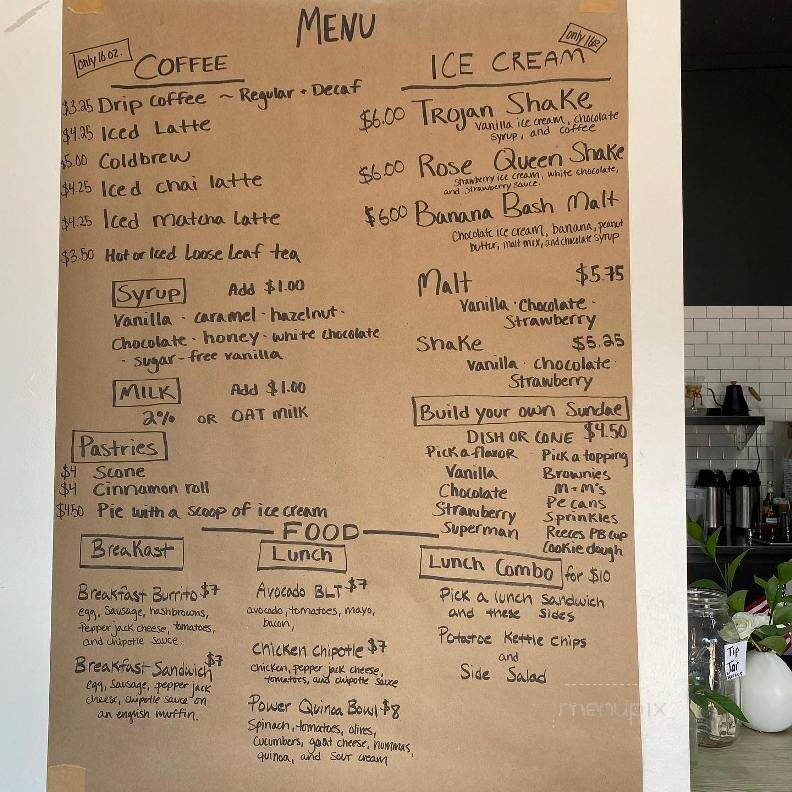 MENU
only 16 oz.
COFFEE
$3.25 Drip Coffee ~ Regular + Decaf
$4.25 Iced Latte
$5.00 Coldbrew
$4.25 Iced chai latte
$4.25 Iced matcha latte
$3.50 Hot or Iced Loose Leaf tea
Syrup Add $1.00
Vanilla · caramel · hazelnut ·
Chocolate · honey · white chocolate
· sugar-free vanilla
MILK Add $1.00
2% OR OAT milk
Pastries
$4 Scone
$4 Cinnamon roll
$4.50 Pie with a scoop of ice cream
only 16oz
ICE CREAM
$6.00 Trojan Shake
Vanilla ice cream, chocolate
syrup, and coffee
$6.00 Rose Queen Shake
Strawberry ice cream, white chocolate,
and strawberry sauce.
$6.00 Banana Bash Malt
Chocolate ice cream, banana, peanut
butter, malt mix, and chocolate syrup
Malt $5.75
Vanilla · Chocolate ·
Strawberry
Shake $5.25
Vanilla · chocolate ·
Strawberry
Build your own Sundae
DISH OR CONE $4.50
Pick a flavor Pick a topping
Vanilla Brownies
Chocolate M+M's
Strawberry Pecans
Superman Sprinkles
Reeces PB cup
Cookie dough
FOOD
Breakast
Breakfast Burrito $7
egg, sausage, hashbrowns,
Pepper jack cheese, tomatoes,
and chipotle sauce.
Breakfast Sandwich $7
egg, sausage, pepper jack
cheese, chipotle sauce on
an english muffin.
Lunch
Avocado BLT $7
avocado, tomatoes, mayo,
bacon,
Chicken Chipotle $7
chicken, pepper jack cheese,
tomatoes, and chipotle sauce
Power Quinoa Bowl $8
Spinach, tomatoes, olives,
cucumbers, goat cheese, hummus,
quinoa, and sour cream
Lunch Combo for $10
Pick a lunch sandwich
and these sides
Potatoe Kettle Chips
and
Side Salad
Tip
Jar
menupix